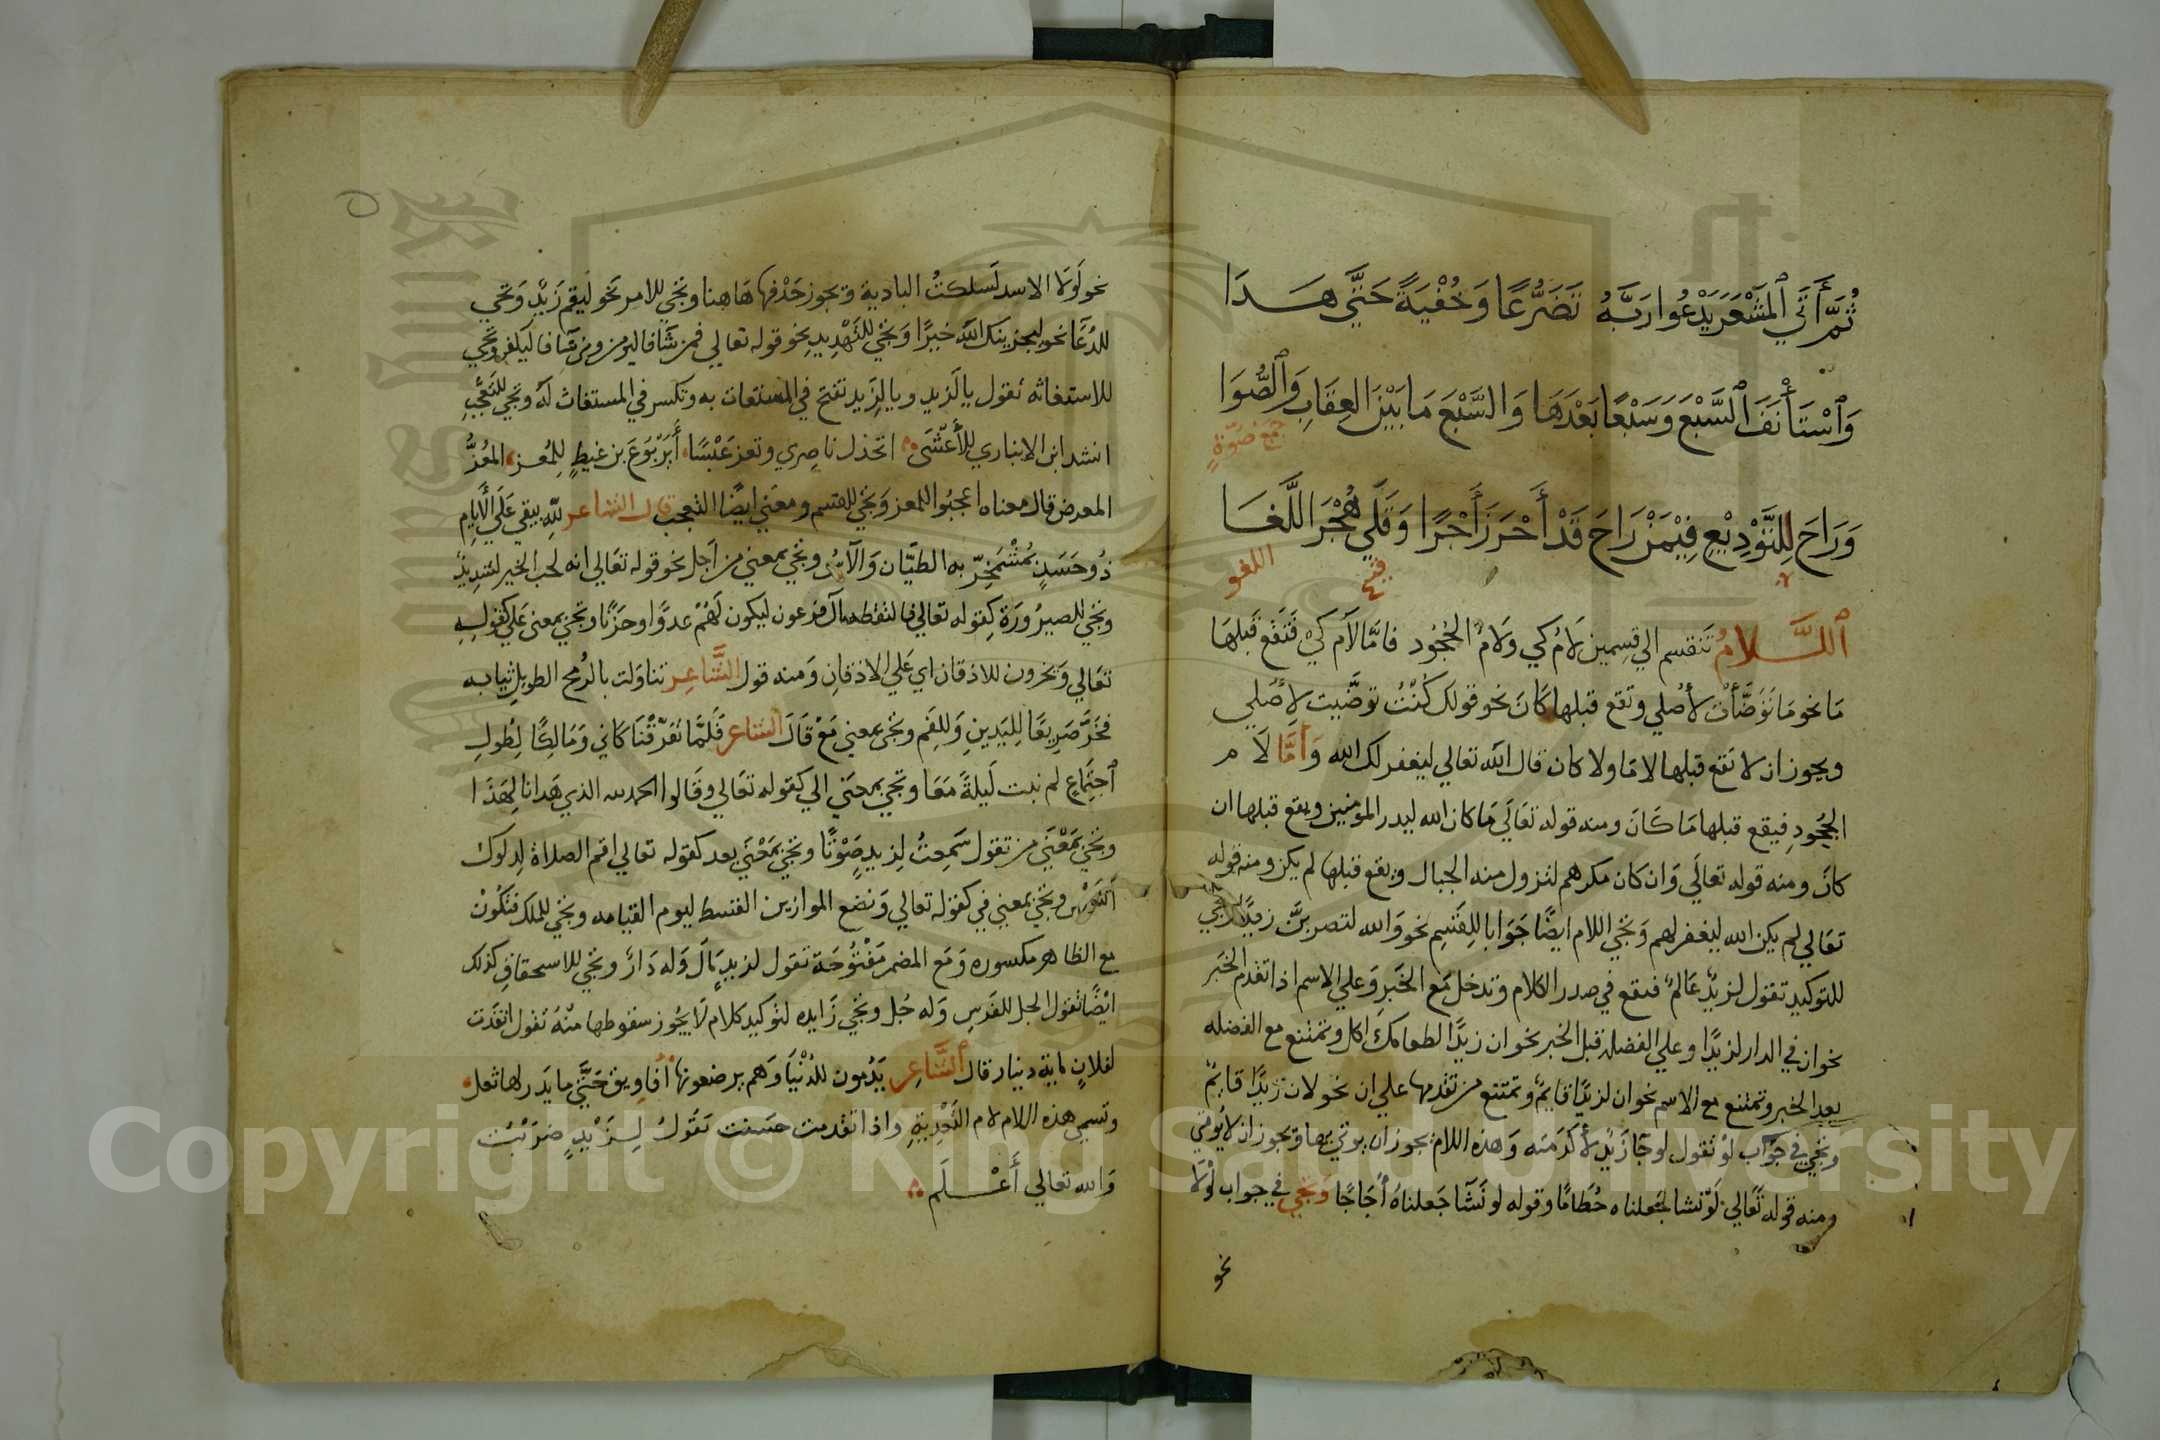 ثُمَّ أَتَى ٱلْمَشْعَرَ يَدْعُوا رَبَّهُ تَضَرُّعًا وَخُفْيَةً حَتَّى هَدَا
وَٱسْتَأْنَفَ ٱلسَّبْعَ وَسَبْعًا بَعْدَهَا وَالسَّبْعَ مَا بَيْنَ العِقَابِ وَٱلصُّوَا
جمع ضوّة
وَرَاحَ لِلتَّوْدِيْعِ فِيْمَنْ رَاحَ قَدْ أَحْرَزَ أَجْرًا وَقَلَي هُجْرَ اللَّغَا
اللغو
ٱللَّلامُ تنقسم الي قسمين لَامُ كي ولَامُ الجُحُود فامَّا لَام كَيْ فَتَقَع قبلهَا
مَا نحو مَا تَوَضَّأْتُ لأُصلي وتقع قبلها كَانَ نحو قولك كُنْتُ توضَّيت لأُصلي
ويجوز ان لا تقع قبلها لا مَا ولا كان قال الله تعالي ليغفر لك الله وَأمَّا لَام
الجحُودِ فيقع قبلها مَا كَانَ ومنه قوله تعَالَي مَا كان الله ليذر المؤمنين ويقع قبلها ان
كانَ ومنه قوله تعالَي وَان كان مكرهم لتزول منه الجبال ويقع قبلها لم يكن ومنه قوله
تعَالي لم يكن الله ليغفر لهم وَتجي اللام ايضًا جَوَابا للِقَسَمِ نحو وَالله لتصربنَّ زيدًا وتجي
للتوكيد تقول لزيدٌ عَالمٌ فتقع في صدر الكلام وتدخل مَع الخَبر وَعلي الاسم اذا تقدم الخَبر
نحو ان في الدار لزيدًا وعلي الفضلة قبل الخبر نحو ان زيدًا لطعامكَ اكل وتمتنع مع الفضله
بعد الخبر وتمتنع مع الاسم نحو ان لزيدًا قايمٌ وتمتنع من تقدمها علي ان نحو لان زيدًا قايمٌ
وتجي في جَوَاب لَوْ تقول لو جَا زَيْدٌ لأكرمَته وَهذه اللام يجوز ان يوتي بها ويجوز ان لا يُوتي
ومنه قوله تَعَالي لَوْ نشا لجَعلناه حُطَامًا وقوله لو نَشَآ جَعلناهُ أُجَاجًا وَتجي في جواب لَوْلَا
نحو
نحو لَولَا الاسد لَسَلكتُ البادية ويجوز حَذفها هَاهنا وتجي للامر نحو ليقم زَيْدٌ وَتجي
للدُعَا نحو ليجزينك الله خيرًا وَتجي للتَهْدِيدِ نحو قوله تعالي فمن شَا فاليومن ومن شَا فاليكفر وتجي
للاستغاثه تقول يالَزيدٍ ويا لِزَيد تفتح في المستغاث به وتكسر في المستغاث لَهُ وتجي للتعَجُّبِ
انشد ابن الانباري للأعْشَى اتخذل ناصري وتعز عَبْسًا أَيَرْبُوعَ بن غيطٍ لِلمُعَزِ المُعَزُّ
المعرض قال معناه اعجبُوا للمعز وَتجي للقسم ومعني ايضًا التعجب قال الشاعر لِلّهِ يبقي عَلَي الأيامِ
ذُو حَسَدٍ بمُشْمَخِرّ به الطيَّان وَالآسُ وتجي بمعني من اجل نحو قوله تعَالي انه لحب الخير لشديدٌ
وتجي للصيرُورَة كقوله تعالي فالتقطه آل فرعون ليكون لَهُم عدوًّا وحَزَنًا وتجي بمعنى عَلي كقوله
تعَالي وَيخرون للاذقان اي عَلي الاذقانِ وَمنه قول الشَّاعِر تناولت بالرُمح الطويل ثيابه
فخَرَّ صَرِيعًا لِليَدينِ وَللِفَم وتجي بمعني مَعْ قَالَ الشاعر فَلَمَّا تفَرَّقْنَا كَاني وَمَالِكًا لِطُولِ
ٱجتِمَاعٍ لم نبت لَيلةً مَعَا وتجي بمعني الي كقوله تعَالي وقَالوا الحمد لله الذي هَدانا لِهَذَا
وتجي بمَعْنَي من تقول سَمعتُ لِزيدٍ صَوْتًا وتجي بمَعْنَي بعد كقوله تعالي اقم الصلاة لدلوك
الشَمْس وتجي بمعني في كقوله تعالي وَنضع الموازين القسط ليوم القيامه وتجي للملك فتكُونْ
مع الظاهر مكسوره وَمَع المضمر مَفْتُوحَة تقول لزيدٍ مَالٌ وَله دَارٌ وتجي للاسحقاقِ كذلك
ايضًا تقول الجل للفَرَسِ وَله جُل وتجي زَايده لتوكيد كلام لَا يجُوز سقوطها منْهُ تقول انقذت
لفلانٍ مايةَ دينار قال ٱلشَّاعِر يَذُمون للدُنْيَا وَهم يرضعونها أفَاويق حَتَّى مَا يَدر لها ثعل
وتسمي هذه اللام لام التَّعْدِيةِ واذا تقدمت حسنت تقُولُ لِزَيْدٍ ضَرَبْتُ
وَالله تعالي أَعْلَم